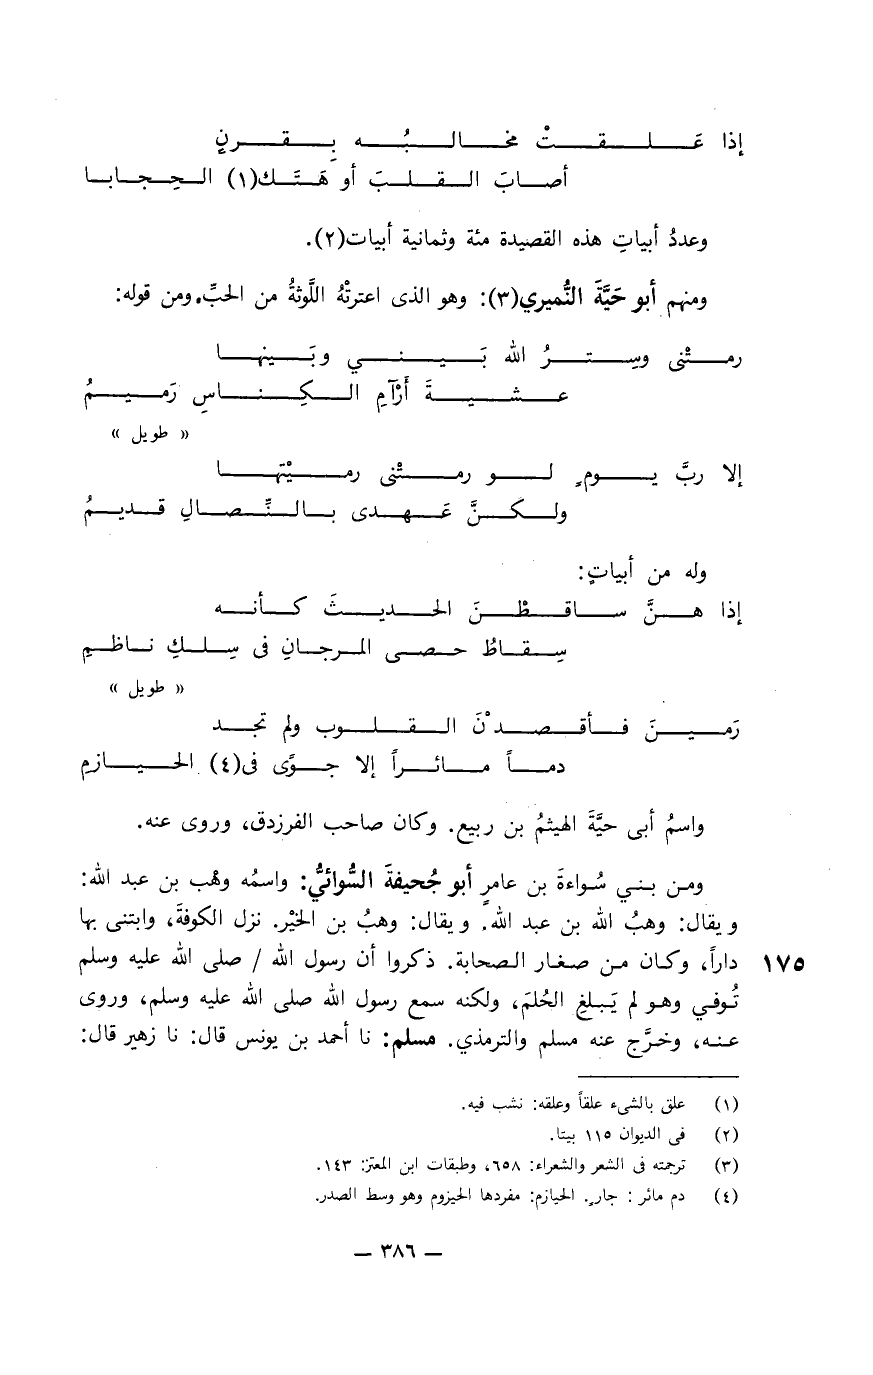 إذا عَلقتْ مخالبُه بِقرنٍ
أصابَ القلبَ أو هَتَك(١) الحِجابا
وعددُ أبياتِ هذه القصيدة مئة وثمانية أبيات(٢).
ومنهم أبو حَيَّةَ النُّميري(٣): وهو الذى اعترتْهُ اللَّوثةُ من الحبِّ. ومن قوله:
رمتْنى وسِترُ الله بَيني وبَينها
عشيةَ أرْآمِ الكِناسِ رَميمُ
« طويل »
إلا ربَّ يومٍ لو رمتْنى رميْتها
ولكنَّ عَهدى بالنِّصالِ قديمُ
وله من أبياتٍ:
إذا هنَّ ساقطْنَ الحديثَ كأنه
سِقاطُ حصى المرجانِ فى سِلكِ ناظمِ
« طويل »
رَمينَ فأقصدْنَ القلوب ولم تجد
دماً مائراً إلا جوًى فى(٤) الحيازمِ
واسمُ أبى حيَّةَ الهيثمُ بن ربيع. وكان صاحب الفرزدق، وروى عنه.
ومن بني سُواءةَ بن عامرٍ أبو جُحيفةَ السُّوائيُّ: واسمُه وهْب بن عبد الله:
ويقال: وهبُ الله بن عبد الله. ويقال: وهبُ بن الخيْر. نزل الكوفةَ، وابتنى بها
داراً، وكان من صغار الصحابة. ذكروا أن رسول الله / صلى الله عليه وسلم ١٧٥
تُوفي وهو لم يَبلغِ الحُلمَ، ولكنه سمع رسول الله صلى الله عليه وسلم، وروى
عنه، وخرَّج عنه مسلم والترمذي. مسلم: نا أحمد بن يونس قال: نا زهير قال:
(١) علق بالشىء علقاً وعلقه: نشب فيه.
(٢) فى الديوان ١١٥ بيتا.
(٣) ترجمته فى الشعر والشعراء: ٦٥٨، وطبقات ابن المعتز: ١٤٣.
(٤) دم مائر : جارٍ. الحيازم: مفردها الحيزوم وهو وسط الصدر.
— ٣٨٦ —